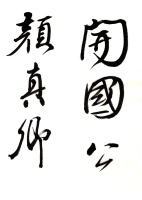 開國公
顏真卿